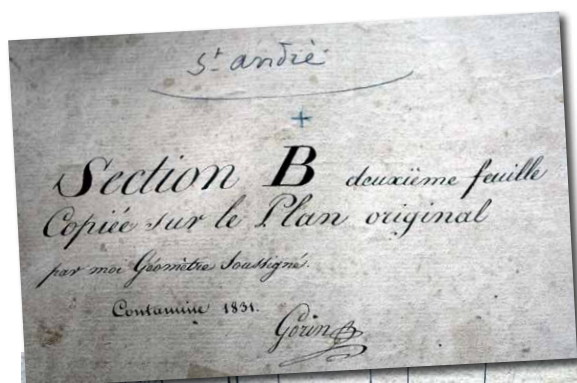 St andré
+
Section B deuxième feuille
Copiée sur le Plan original
par moi Géomètre Soussigné.
Contamine 1831.
Gorin